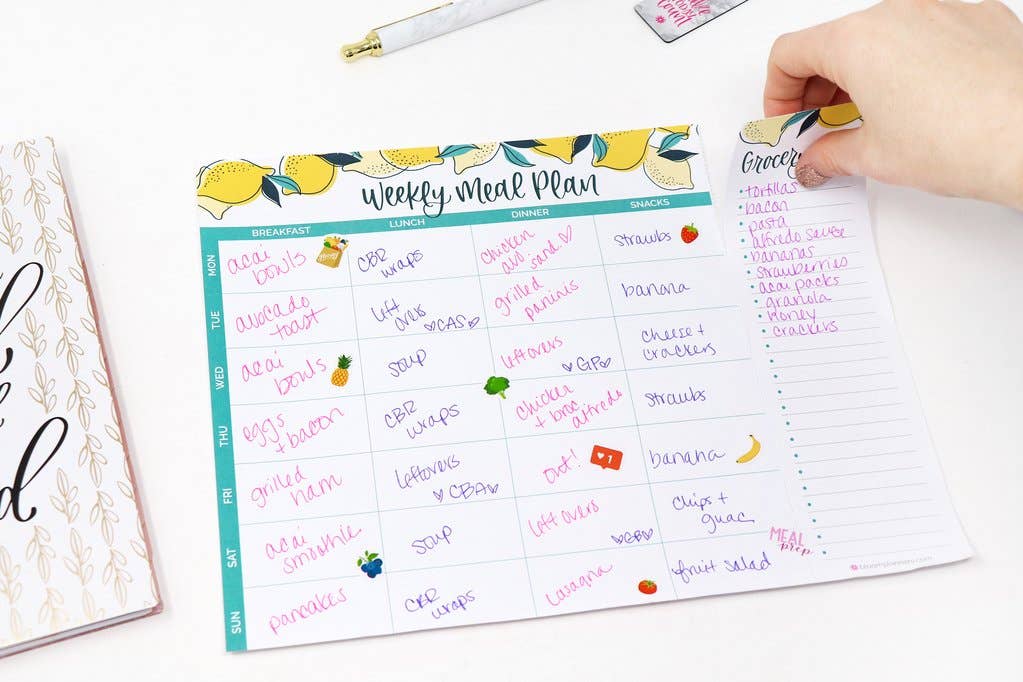 Weekly Meal Plan
BREAKFAST LUNCH DINNER SNACKS
MON
acai
bowls
CBR
wraps
chicken
avo. sand
strawbs
TUE
avocado
toast
left
overs
CAS
grilled
paninis
banana
WED
acai
bowls
soup
leftovers
GP
cheese +
crackers
THU
eggs
+ bacon
CBR
wraps
chicken
+ broc
alfredo
strawbs
FRI
grilled
ham
leftovers
CBA
out!
1
banana
SAT
acai
smoothie
soup
leftovers
chips +
guac
SUN
pancakes
CBR
wraps
lasagna
fruit salad
MEAL
prep
Grocery
tortillas
bacon
pasta
alfredo sauce
bananas
strawberries
acai packs
granola
honey
crackers
bloomplanners.com